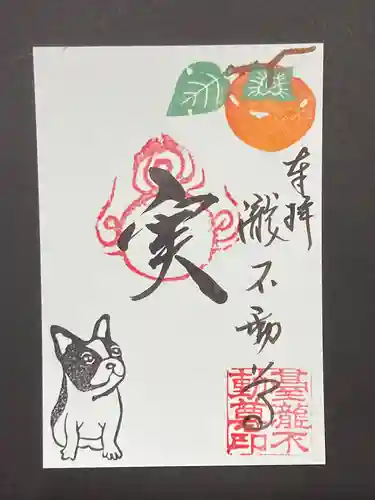 奉拝
瀧不動尊
実
基瀧不
動尊印